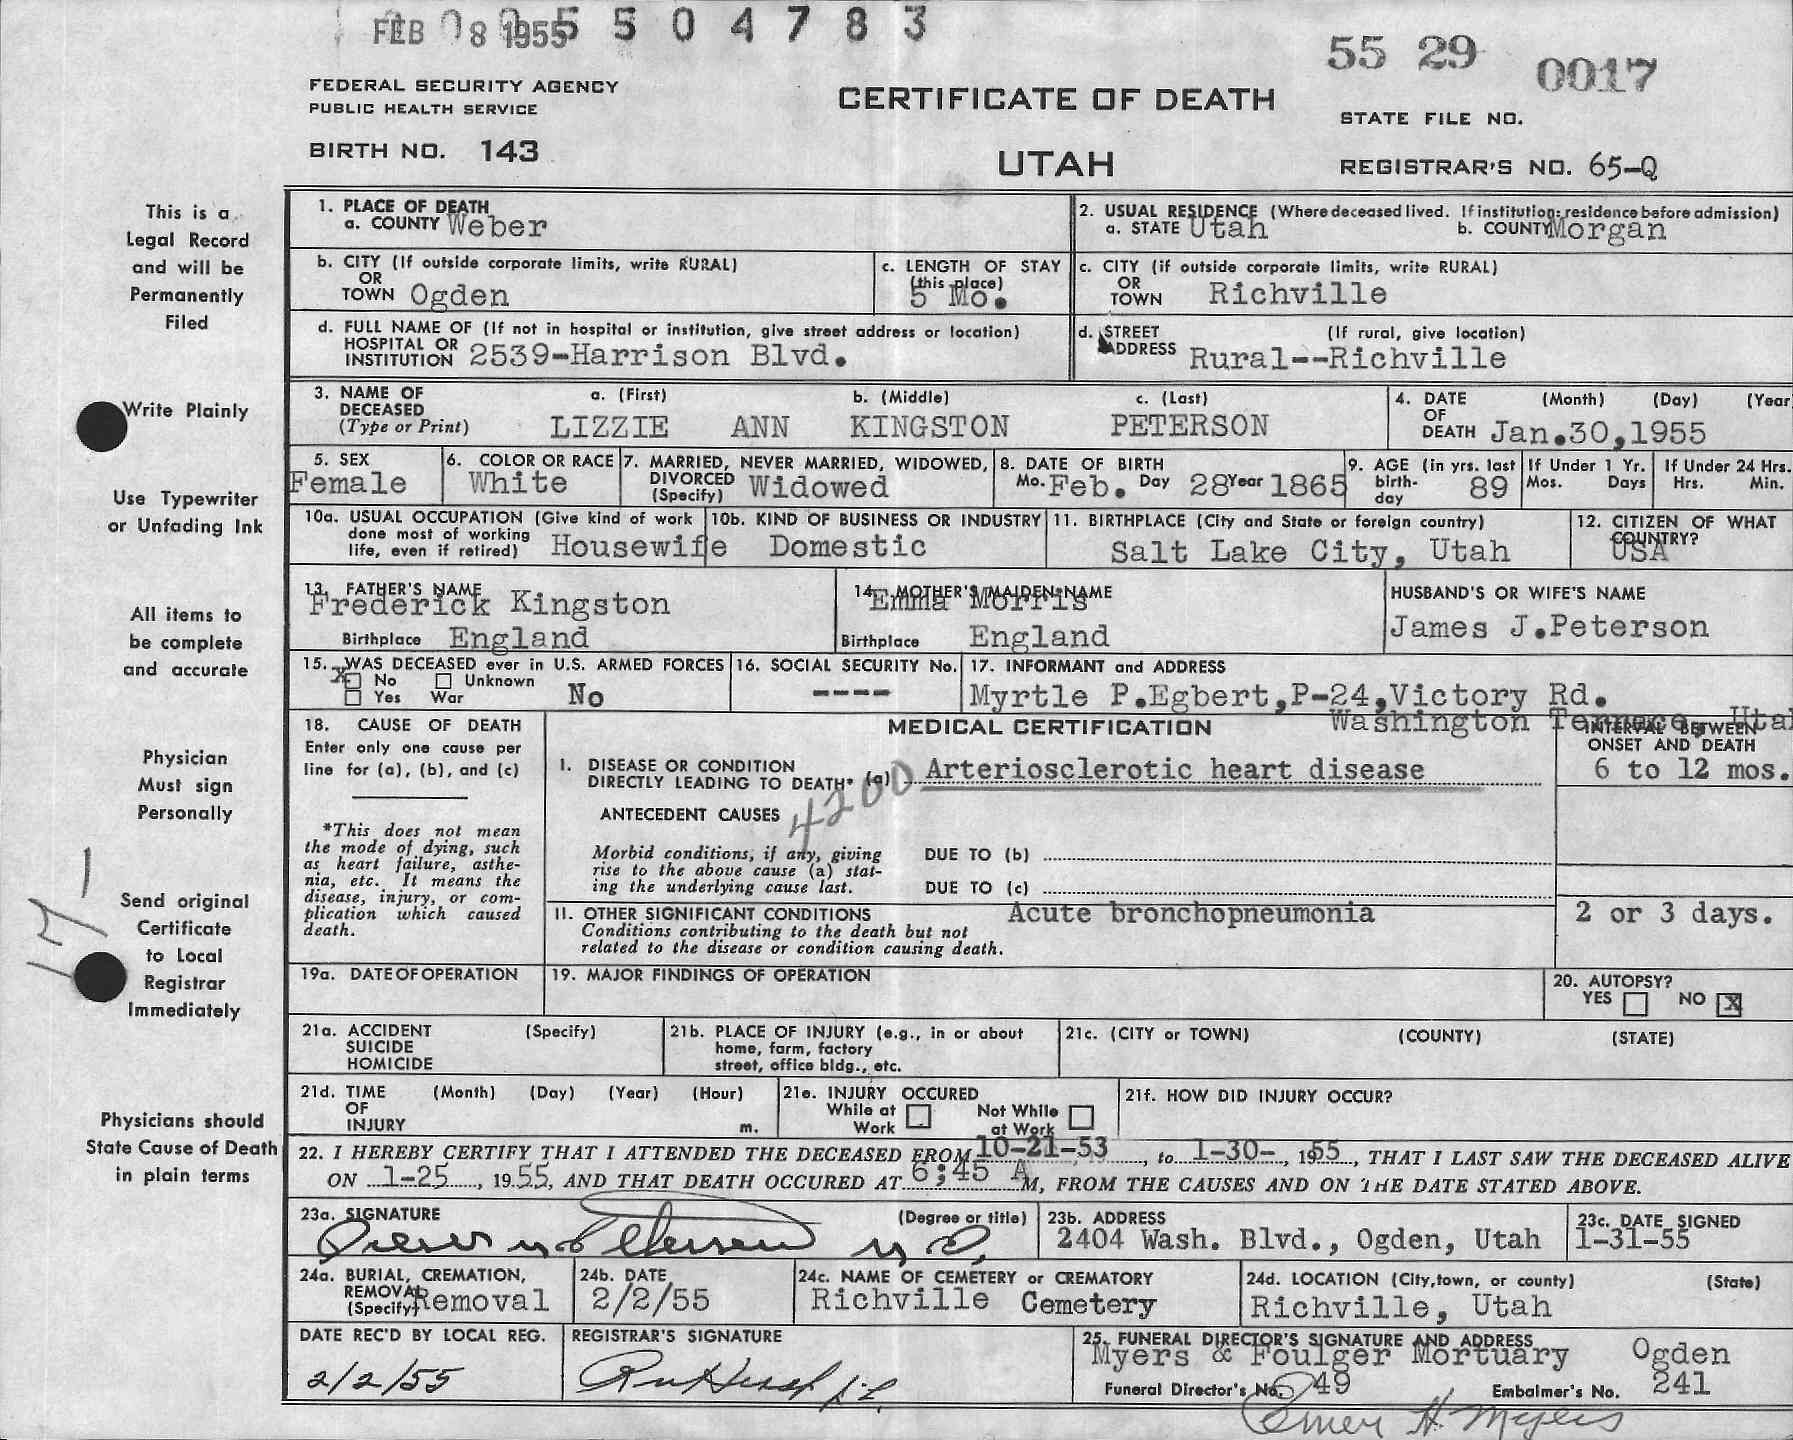 FEB 08 1955 5 5 0 4 7 8 3
55 29 0017
FEDERAL SECURITY AGENCY
PUBLIC HEALTH SERVICE
CERTIFICATE OF DEATH
STATE FILE NO.
BIRTH NO. 143
UTAH
REGISTRAR'S NO. 65-Q
This is a
Legal Record
and will be
Permanently
Filed
Write Plainly
Use Typewriter
or Unfading Ink
All items to
be complete
and accurate
Physician
Must sign
Personally
Send original
Certificate
to Local
Registrar
Immediately
Physicians should
State Cause of Death
in plain terms
1. PLACE OF DEATH
a. COUNTY Weber
2. USUAL RESIDENCE (Where deceased lived. If institution: residence before admission)
a. STATE Utah b. COUNTY Morgan
b. CITY (If outside corporate limits, write RURAL)
OR
TOWN Ogden
c. LENGTH OF STAY
(this place)
5 Mo.
c. CITY (if outside corporate limits, write RURAL)
OR
TOWN Richville
d. FULL NAME OF (If not in hospital or institution, give street address or location)
HOSPITAL OR
INSTITUTION 2539-Harrison Blvd.
d. STREET (If rural, give location)
ADDRESS Rural--Richville
3. NAME OF
DECEASED
(Type or Print)
a. (First) b. (Middle) c. (Last)
LIZZIE ANN KINGSTON PETERSON
4. DATE (Month) (Day) (Year
OF
DEATH Jan.30,1955
5. SEX
Female
6. COLOR OR RACE
White
7. MARRIED, NEVER MARRIED, WIDOWED,
DIVORCED
(Specify) Widowed
8. DATE OF BIRTH
Mo. Feb. Day 28 Year 1865
9. AGE (in yrs. last
birth-
day 89
If Under 1 Yr.
Mos. Days
If Under 24 Hrs.
Hrs. Min.
10a. USUAL OCCUPATION (Give kind of work
done most of working
life, even if retired) Housewife
10b. KIND OF BUSINESS OR INDUSTRY
Domestic
11. BIRTHPLACE (City and State or foreign country)
Salt Lake City, Utah
12. CITIZEN OF WHAT
COUNTRY?
USA
13. FATHER'S NAME
Frederick Kingston
Birthplace England
14. MOTHER'S MAIDEN NAME
Emma Morris
Birthplace England
HUSBAND'S OR WIFE'S NAME
James J.Peterson
15. WAS DECEASED ever in U.S. ARMED FORCES
X No Unknown
Yes War No
16. SOCIAL SECURITY No.
----
17. INFORMANT and ADDRESS
Myrtle P.Egbert,P-24,Victory Rd.
Washington Terrace, Utah
18. CAUSE OF DEATH
Enter only one cause per
line for (a), (b), and (c)
*This does not mean
the mode of dying, such
as heart failure, asthe-
nia, etc. It means the
disease, injury, or com-
plication which caused
death.
MEDICAL CERTIFICATION
INTERVAL BETWEEN
ONSET AND DEATH
I. DISEASE OR CONDITION
DIRECTLY LEADING TO DEATH* (a) Arteriosclerotic heart disease
6 to 12 mos.
4200
ANTECEDENT CAUSES
Morbid conditions, if any, giving
rise to the above cause (a) stat-
ing the underlying cause last.
DUE TO (b)
DUE TO (c)
II. OTHER SIGNIFICANT CONDITIONS
Conditions contributing to the death but not
related to the disease or condition causing death.
Acute bronchopneumonia
2 or 3 days.
19a. DATE OF OPERATION
19. MAJOR FINDINGS OF OPERATION
20. AUTOPSY?
YES NO X
21a. ACCIDENT (Specify)
SUICIDE
HOMICIDE
21b. PLACE OF INJURY (e.g., in or about
home, farm, factory
street, office bldg., etc.
21c. (CITY or TOWN) (COUNTY) (STATE)
21d. TIME (Month) (Day) (Year) (Hour)
OF
INJURY m.
21e. INJURY OCCURED
While at Work
Not While at Work
21f. HOW DID INJURY OCCUR?
22. I HEREBY CERTIFY THAT I ATTENDED THE DECEASED FROM 10-21-53, to 1-30-, 1955, THAT I LAST SAW THE DECEASED ALIVE
ON 1-25, 19 55, AND THAT DEATH OCCURED AT 6;45 A M, FROM THE CAUSES AND ON THE DATE STATED ABOVE.
23a. SIGNATURE (Degree or title)
M.D.
23b. ADDRESS
2404 Wash. Blvd., Ogden, Utah
23c. DATE SIGNED
1-31-55
24a. BURIAL, CREMATION,
REMOVAL
(Specify) Removal
24b. DATE
2/2/55
24c. NAME OF CEMETERY or CREMATORY
Richville Cemetery
24d. LOCATION (City,town, or county) (State)
Richville, Utah
DATE REC'D BY LOCAL REG.
2/2/55
REGISTRAR'S SIGNATURE
25. FUNERAL DIRECTOR'S SIGNATURE AND ADDRESS
Myers & Foulger Mortuary Ogden
Funeral Director's No. 49 Embalmer's No. 241
Elmer H. Myers